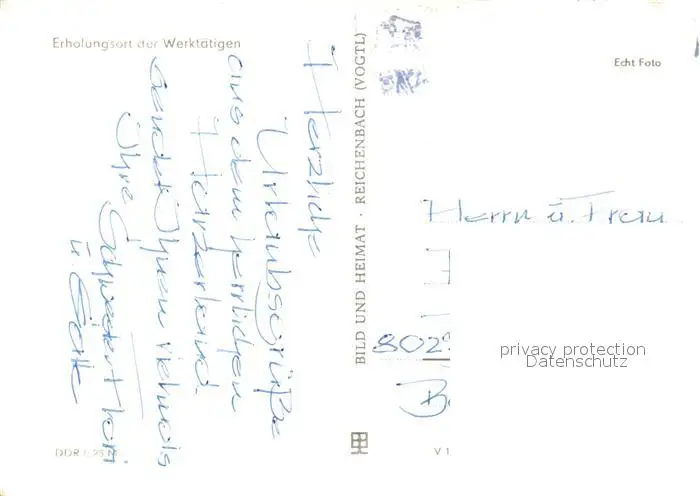 Erholungsort der Werktätigen
Herzliche
Urlaubsgrüße
aus dem herrlichen
Harzerland
sendet Ihnen
Ihre Schwester
u.
DDR
BILD UND HEIMAT · REICHENBACH (VOGTL)
Echt Foto
Herrn u. Frau
802
privacy protection
Datenschutz
V 1